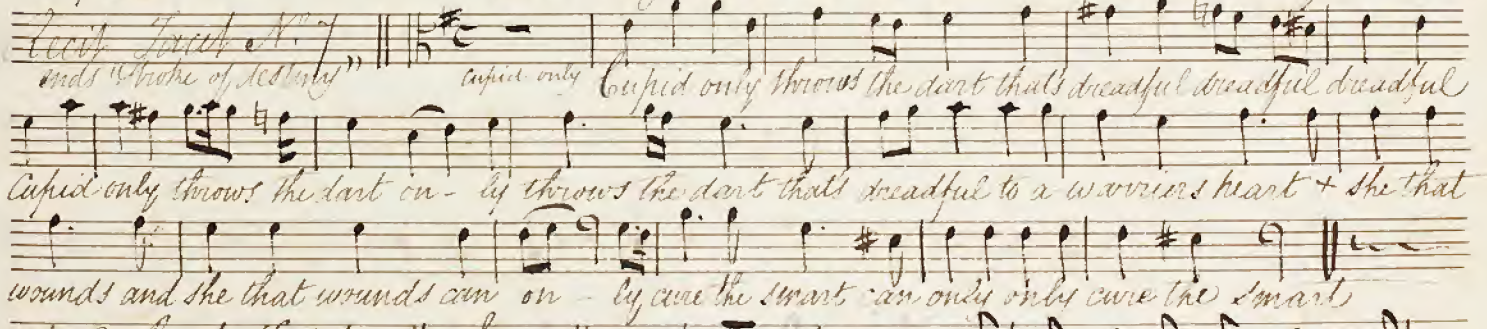 Recit Tacet No. 7
ends "stroke of destiny"
cupid only Cupid only throws the dart that's dreadful dreadful dreadful
Cupid only throws the dart on - ly throws the dart that's dreadful to a warriers heart + she that
wounds and she that wounds can on - ly cure the smart can only only cure the smart